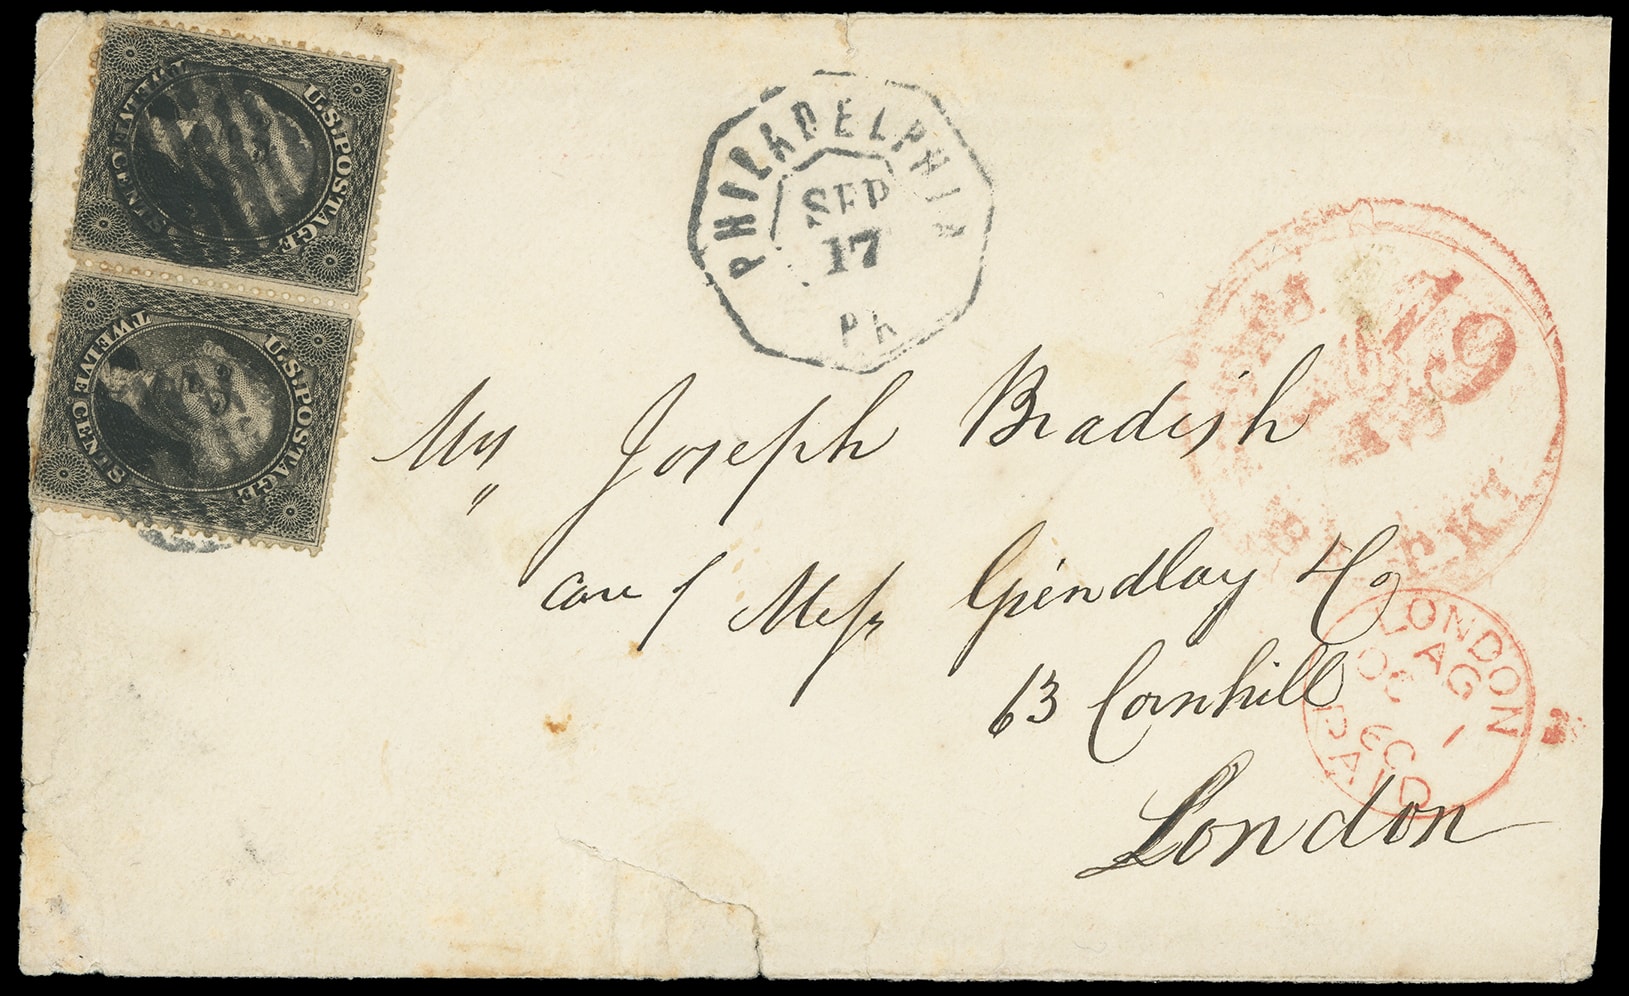 U.S. POSTAGE
TWELVE CENTS
U.S. POSTAGE
TWELVE CENTS
PHILADELPHIA
SEP
17
PA
19
PKT
Mrs Joseph Bradish
care of Messrs Grindlay & Co
63 Cornhill
London
LONDON
AG
OC 1
60
PAID